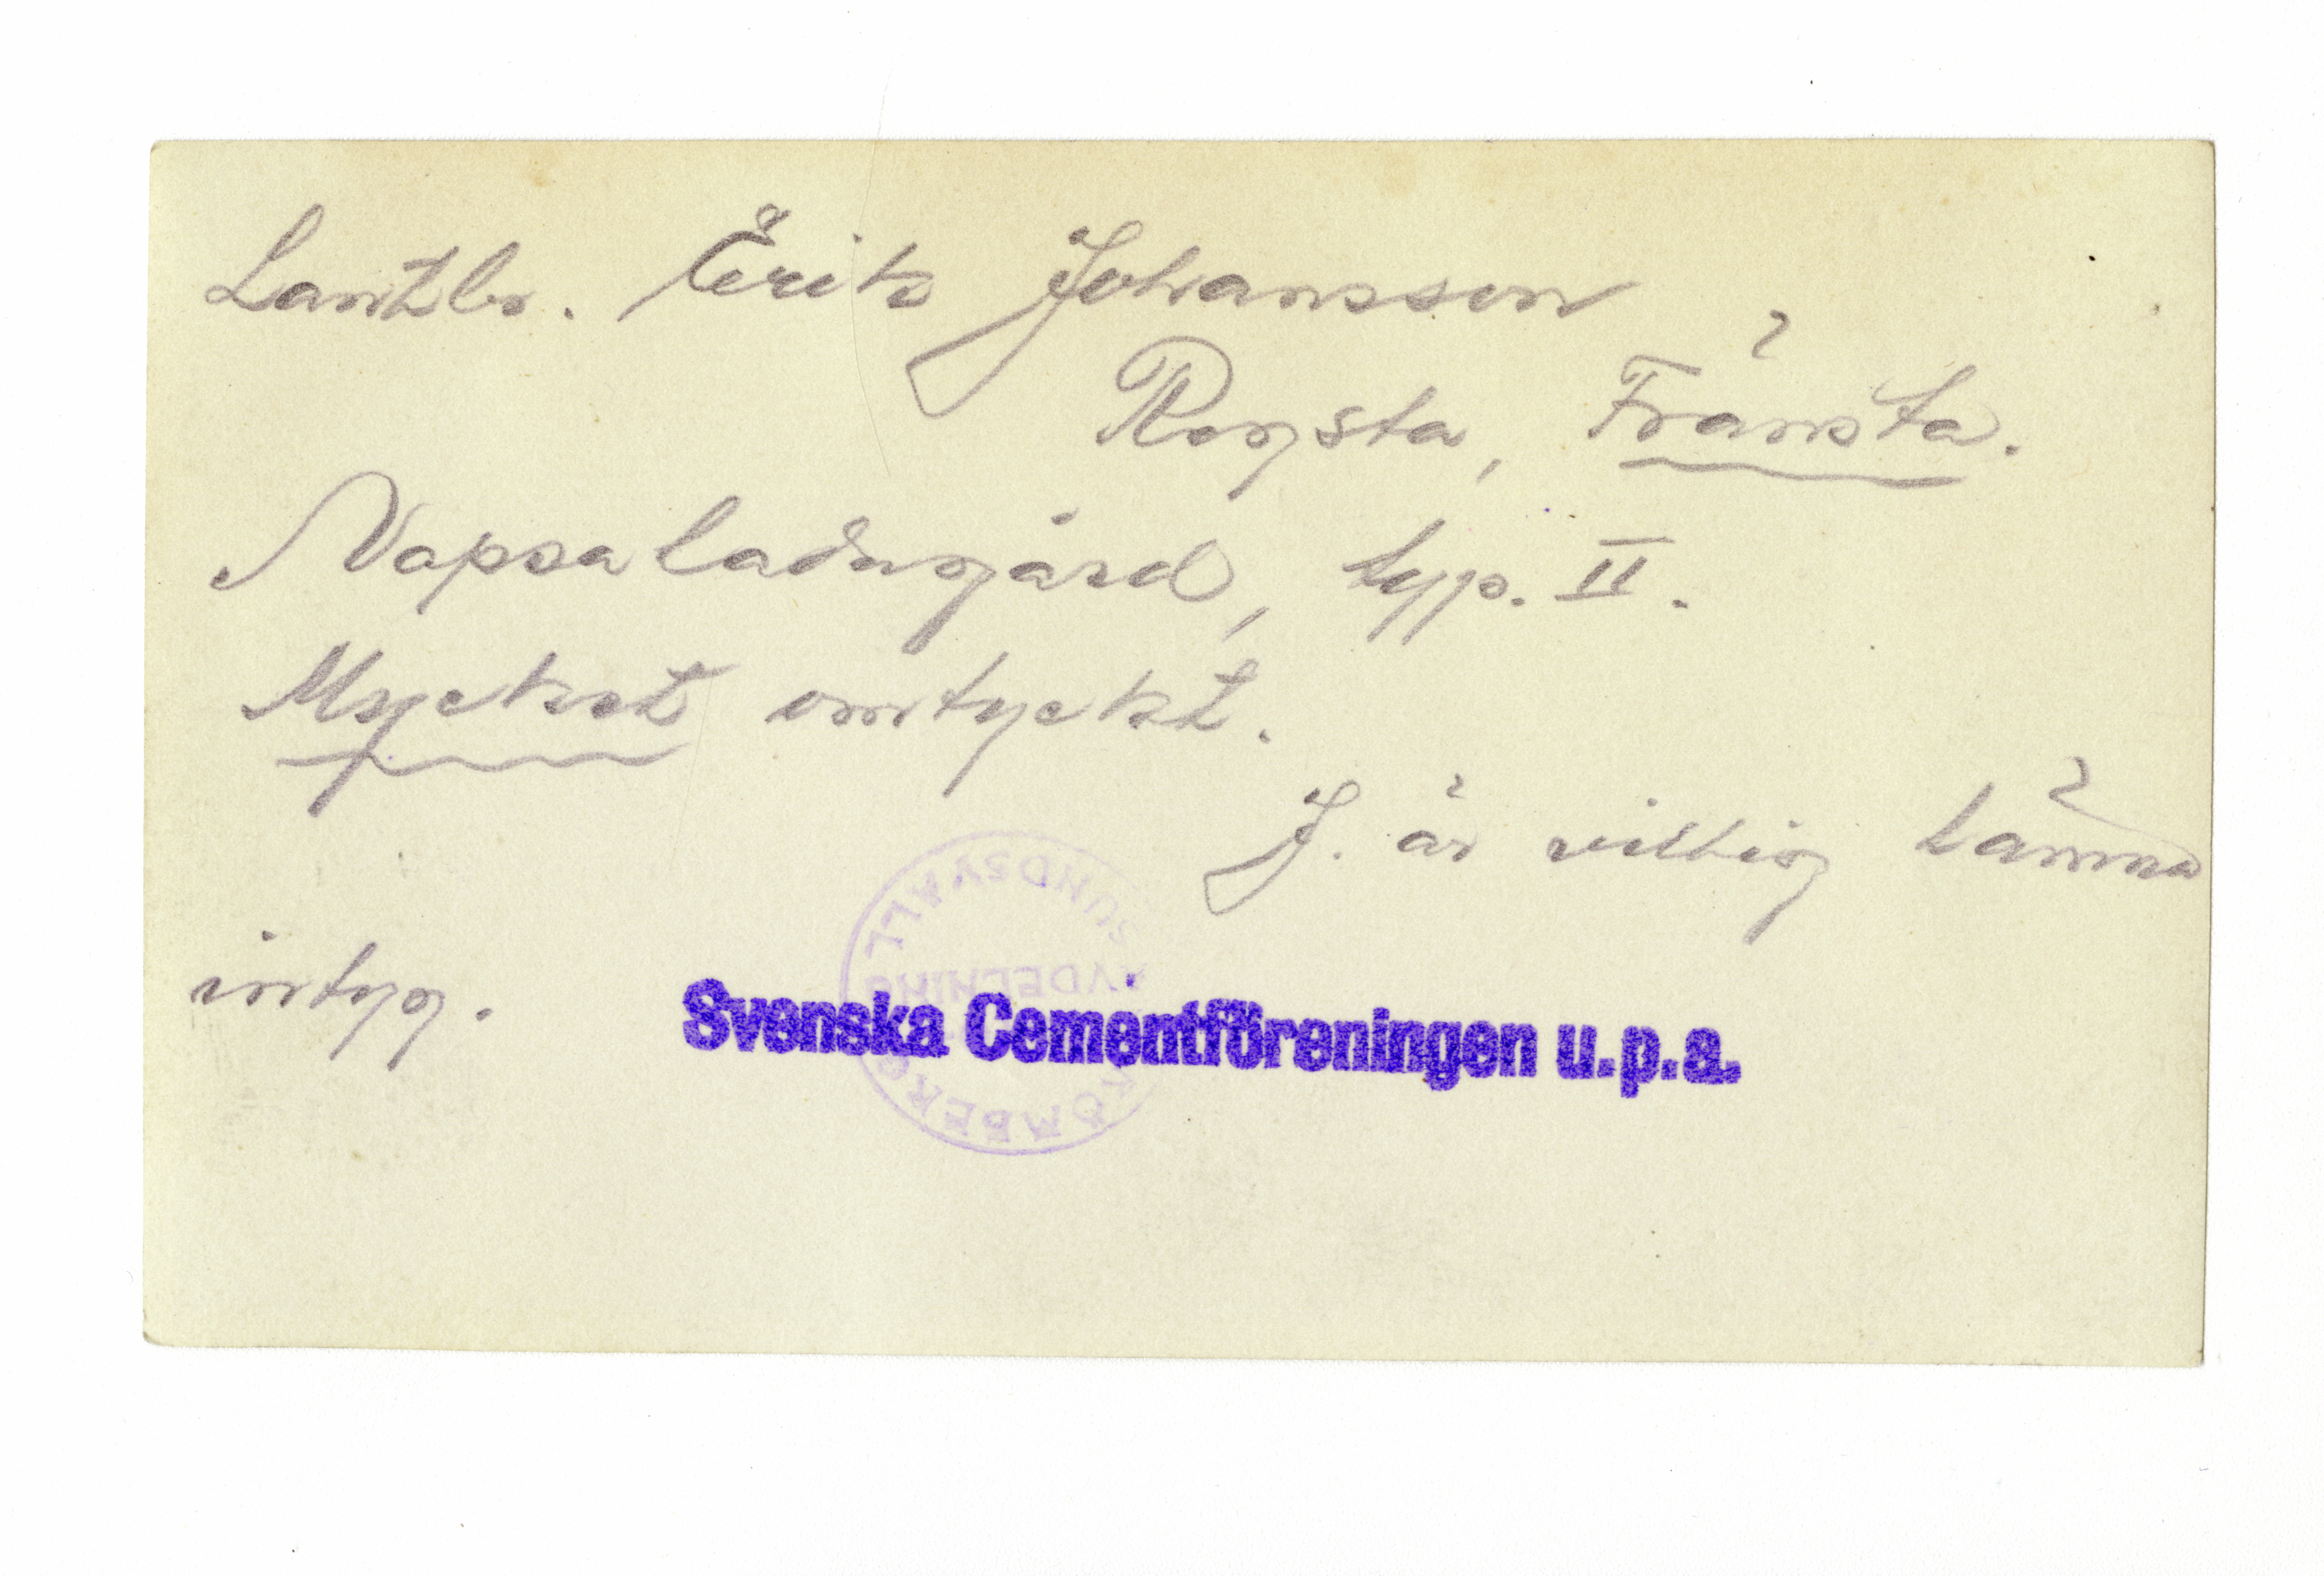 Lantbr. Erik Johansson
Rogsta, Fränsta.
Napsaladugård, typ. II.
Mycket omtyckt.
J. är villig lämna
intyg.
SUNDSVALL
AVDELNING
Svenska Cementföreningen u.p.a.